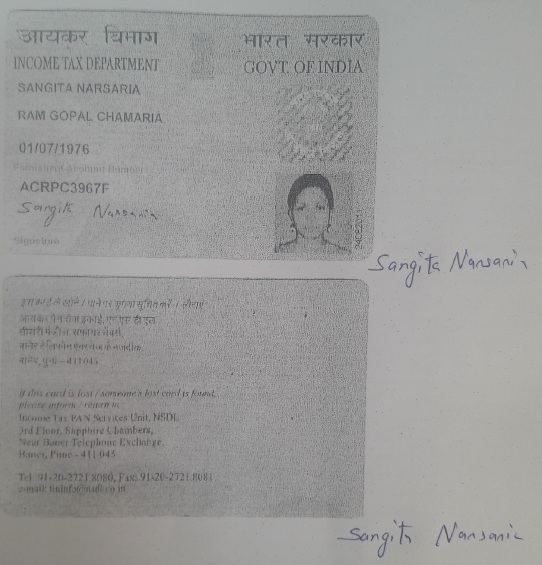 आयकर विभाग
भारत सरकार
INCOME TAX DEPARTMENT
GOVT. OF INDIA
SANGITA NARSARIA
RAM GOPAL CHAMARIA
01/07/1976
Permanent Account Number
ACRPC3967F
Sangita Narsaria
Signature
24082011
Sangita Narsaria
इस कार्ड के खोने / पाने पर कृपया सूचित करें / लौटाएं
आयकर पैन सेवा इकाई, एन एस डी एल
तीसरी मंज़ील, सफायर चेंबर्स,
बानेर टेलिफोन एक्स्चेंज के नजदीक,
बानेर, पुना - 411045
If this card is lost / someone's lost card is found,
please inform / return to
Income Tax PAN Services Unit, NSDL
3rd Floor, Sapphire Chambers,
Near Baner Telephone Exchange,
Baner, Pune - 411 045
Tel: 91-20-2721 8080, Fax: 91-20-2721 8081
e-mail: tininfo@nsdl.co.in
Sangita Narsaria